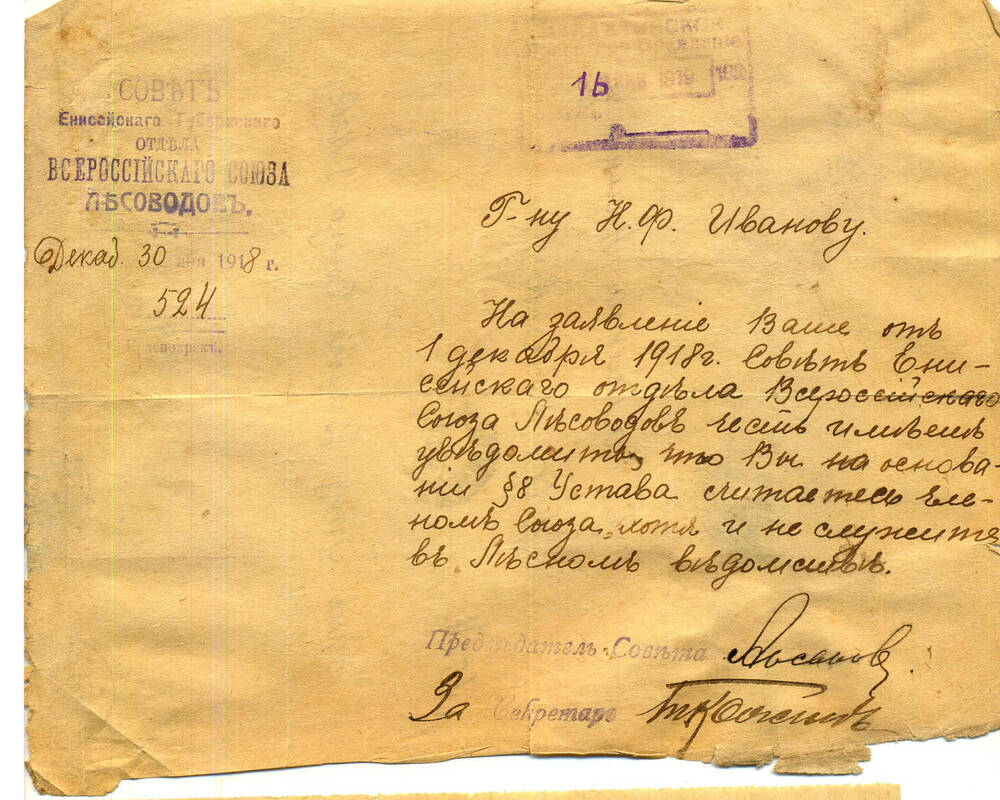 СОВѢТЪ
Енисейскаго Губернскаго
ОТДѢЛА
ВСЕРОССІЙСКАГО СОЮЗА
ЛѢСОВОДОВЪ.
Декаб. 30 дня 1918 г.
524
Красноярскъ.
1919
16
Г-ну Н.Ф. Иванову.
На заявленіе Ваше отъ
1 декабря 1918 г. Совѣтъ Ени-
сейскаго отдѣла Всероссійскаго
Союза Лѣсоводовъ честь имѣетъ
увѣдомить, что Вы на основа-
ніи §8 Устава считаетесь чле-
номъ Союза, хотя и не служите
въ Лѣсномъ вѣдомствѣ.
Предсѣдатель Совѣта
За Секретаря